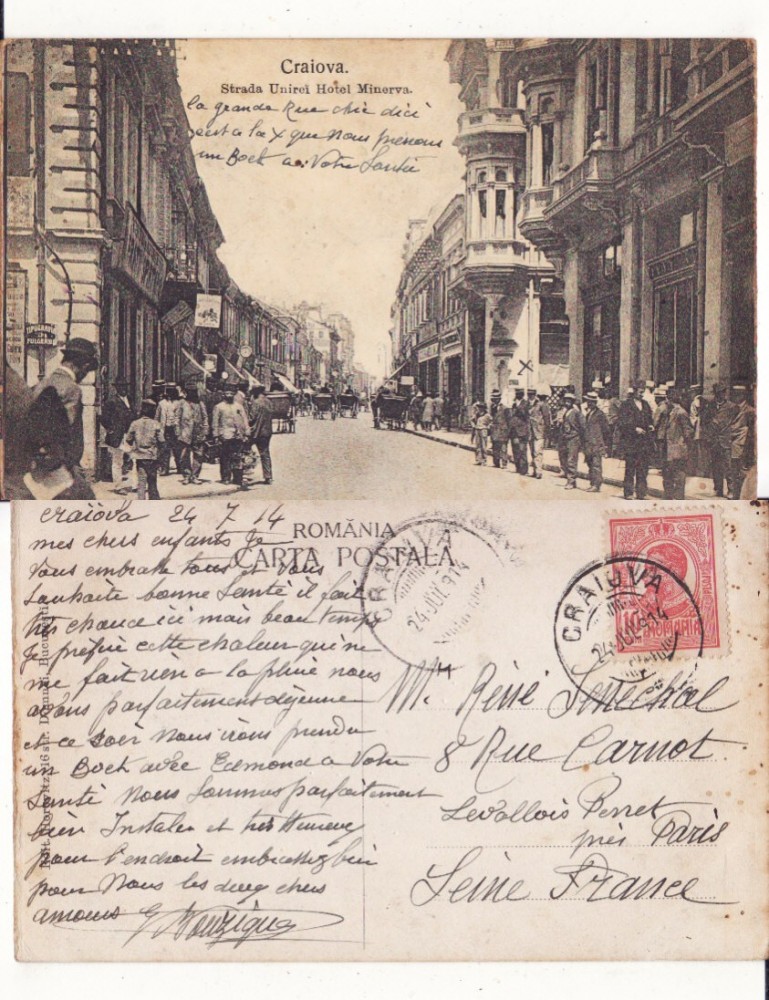 Craiova.
Strada Unirei Hotel Minerva.
la grande Rue chic dici
cest a la X que nous prenons
un Bock a Votre Santé
TIPOGRAFIA
FULGERUL
X
Craiova 24 7 14
mes chers enfants Je
Vous embrasse tous et Vous
Souhaite bonne Santé il fait
très chaud ici mais beau temps
Je préfère cette chaleur qui ne
me fait rien a la pluie nous
avons parfaitement déjeuné
et ce Soir Nous irons prendre
un Bock avec Edmond a Votre
Santé Nous Sommes parfaitement
bien Instaler et très Heureux
pour l'endroit embrassez bien
pour Nous les deux chers
amours
ROMÂNIA
CARTA POSTALA
CRAIOVA
24 JUL 914
CRAIOVA
24 JUL 914
10 ROMANIA
M. Réné Senechal
8 Rue Carnot
Levallois Perret
près Paris
Seine France